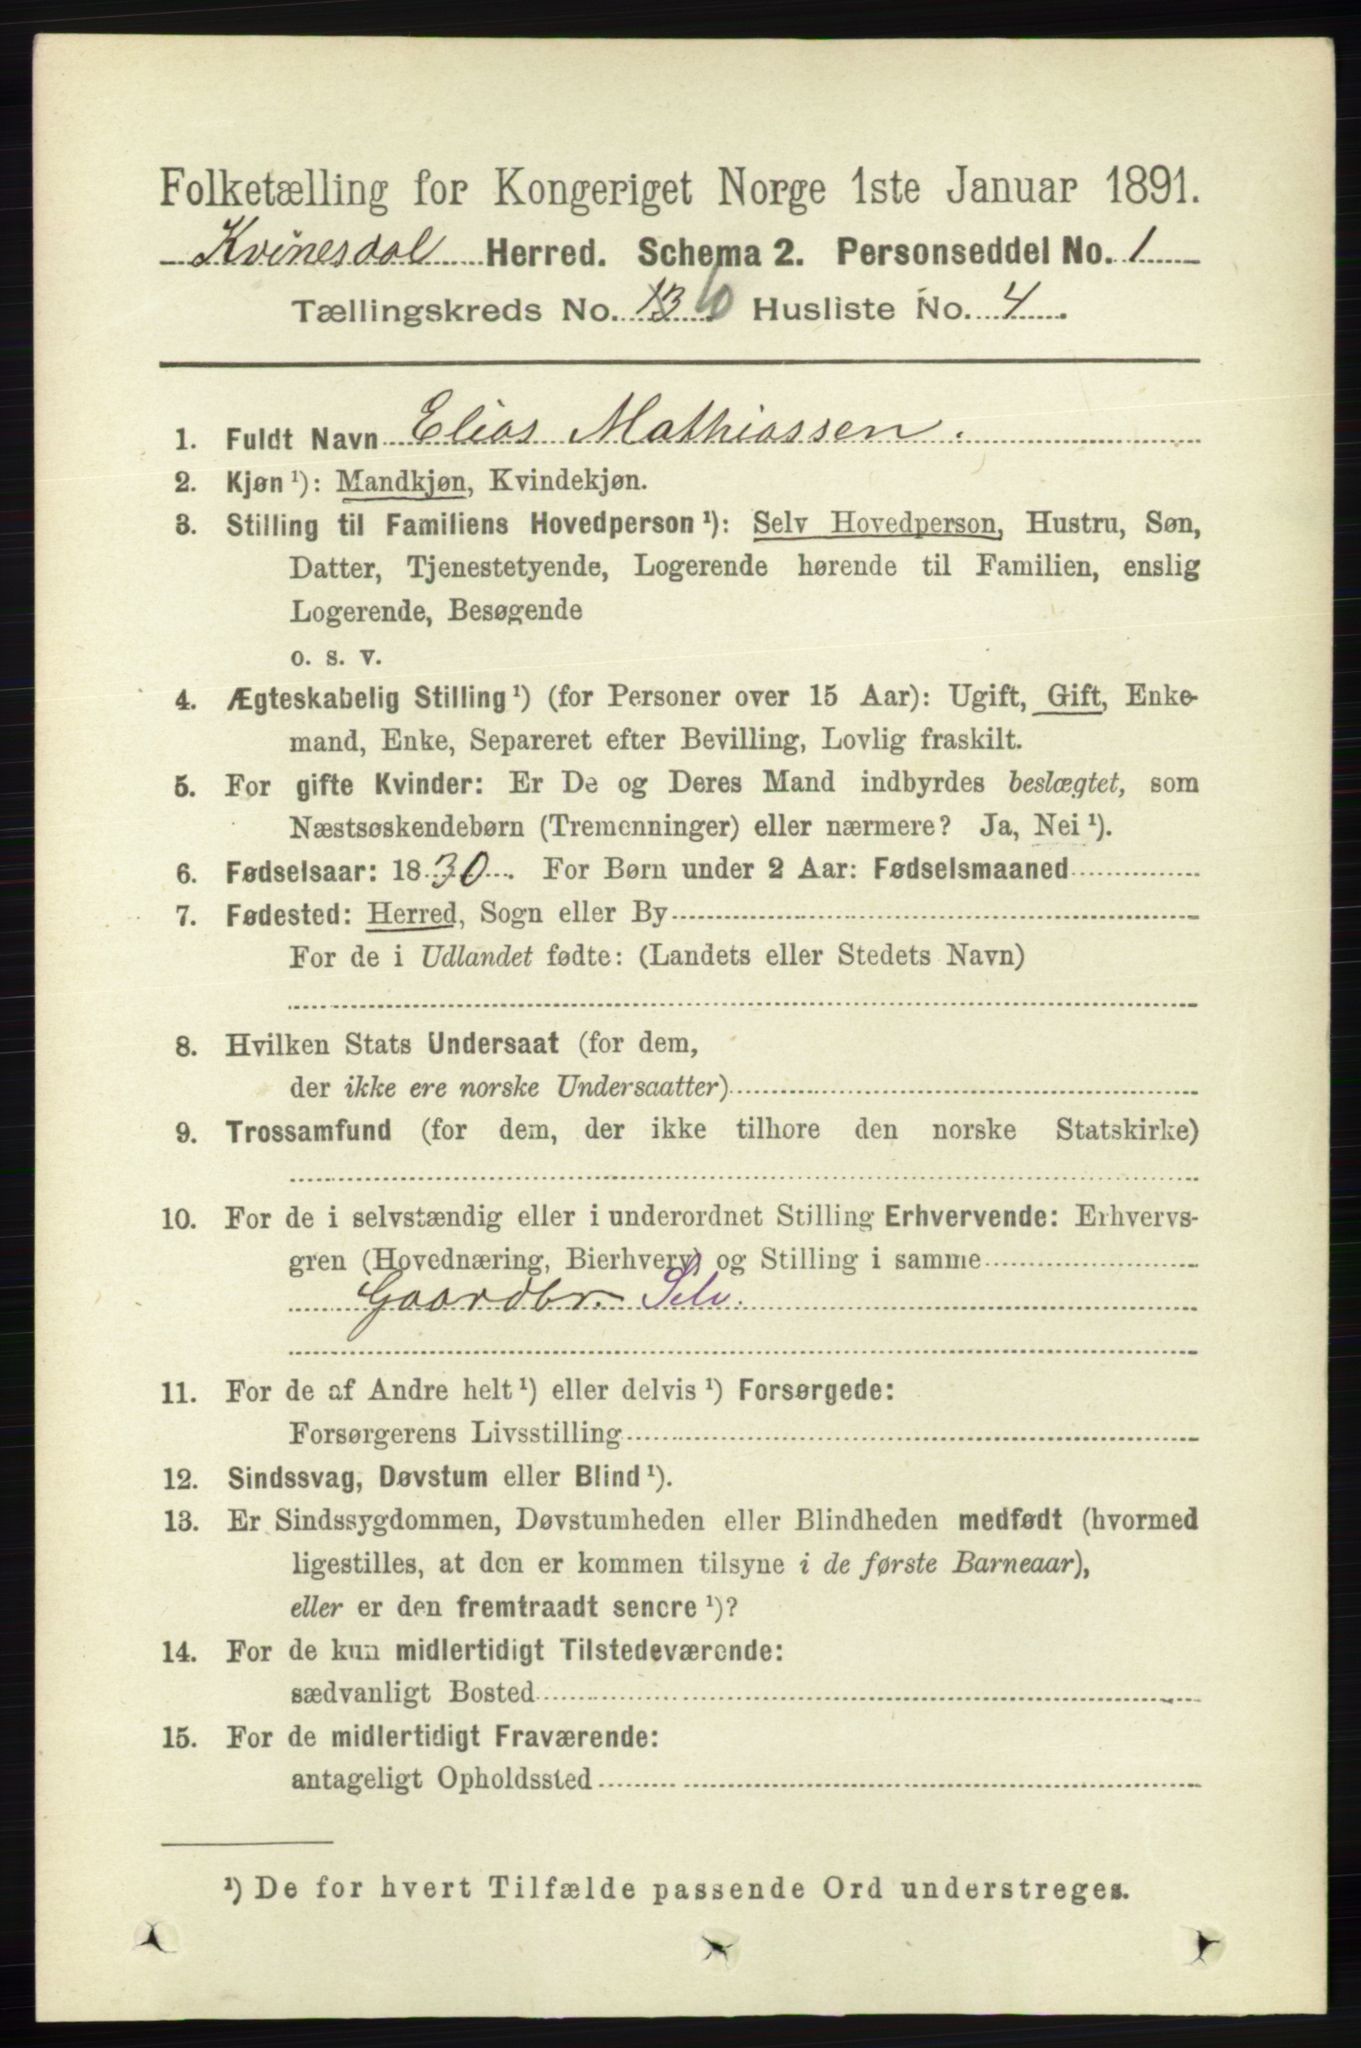 Folketælling for Kongeriget Norge 1ste Januar 1891.
Kvinesdal Herred. Schema 2. Personseddel No. 1
Tællingskreds No. 13 6 Husliste No. 4
1. Fuldt Navn Elias Mathiassen.
2. Kjøn ¹): Mandkjøn, Kvindekjøn.
3. Stilling til Familiens Hovedperson ¹): Selv Hovedperson, Hustru, Søn,
Datter, Tjenestetyende, Logerende hørende til Familien, enslig
Logerende, Besøgende
o. s. v.
4. Ægteskabelig Stilling ¹) (for Personer over 15 Aar): Ugift, Gift, Enke-
mand, Enke, Separeret efter Bevilling, Lovlig fraskilt.
5. For gifte Kvinder: Er De og Deres Mand indbyrdes beslægtet, som
Næstsøskendebørn (Tremenninger) eller nærmere? Ja, Nei ¹).
6. Fødselsaar: 1830. For Børn under 2 Aar: Fødselsmaaned
7. Fødested: Herred, Sogn eller By
For de i Udlandet fødte: (Landets eller Stedets Navn)
8. Hvilken Stats Undersaat (for dem,
der ikke ere norske Undersaatter)
9. Trossamfund (for dem, der ikke tilhøre den norske Statskirke)
10. For de i selvstændig eller i underordnet Stilling Erhvervende: Erhvervs-
gren (Hovednæring, Bierhverv) og Stilling i samme
Gaardbr. Selv.
11. For de af Andre helt ¹) eller delvis ¹) Forsørgede:
Forsørgerens Livsstilling
12. Sindssvag, Døvstum eller Blind ¹).
13. Er Sindssygdommen, Døvstumheden eller Blindheden medfødt (hvormed
ligestilles, at den er kommen tilsyne i de første Barneaar),
eller er den fremtraadt senere ¹)?
14. For de kun midlertidigt Tilstedeværende:
sædvanligt Bosted
15. For de midlertidigt Fraværende:
antageligt Opholdssted
¹) De for hvert Tilfælde passende Ord understreges.